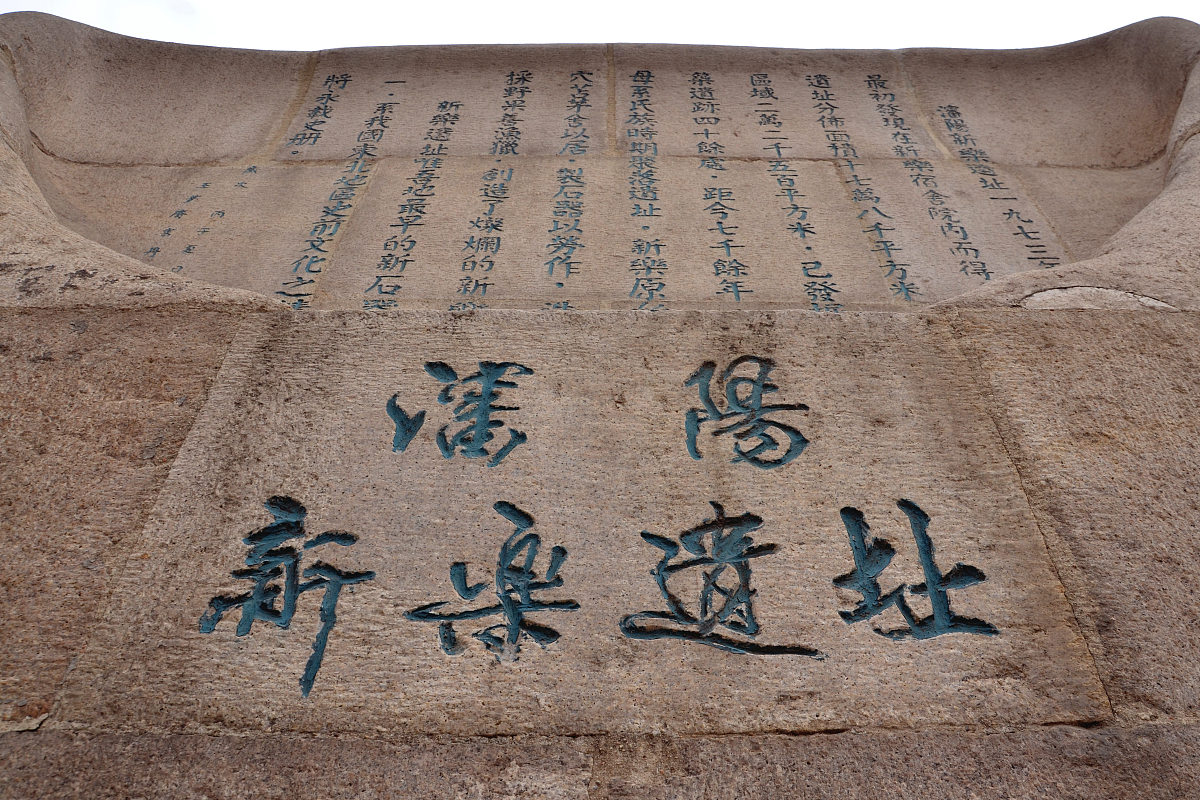 瀋陽新樂遺址一九七三
最初發現在新樂宿舍院內而得
遺址分佈面積十七萬八千平方米
區域二萬二千五百平方米．已發
築遺跡四十餘處 距今七千餘年
母系氏族時期聚落遺址．新樂原
穴苫茅舍以居．製石器以勞作．
採野果善漁獵．創造了燦爛的新
新樂遺址 地最早的新石器
一．系我國東北地區史前文化之
將永載史册．
歲次 丙子
瀋陽
新樂遺址